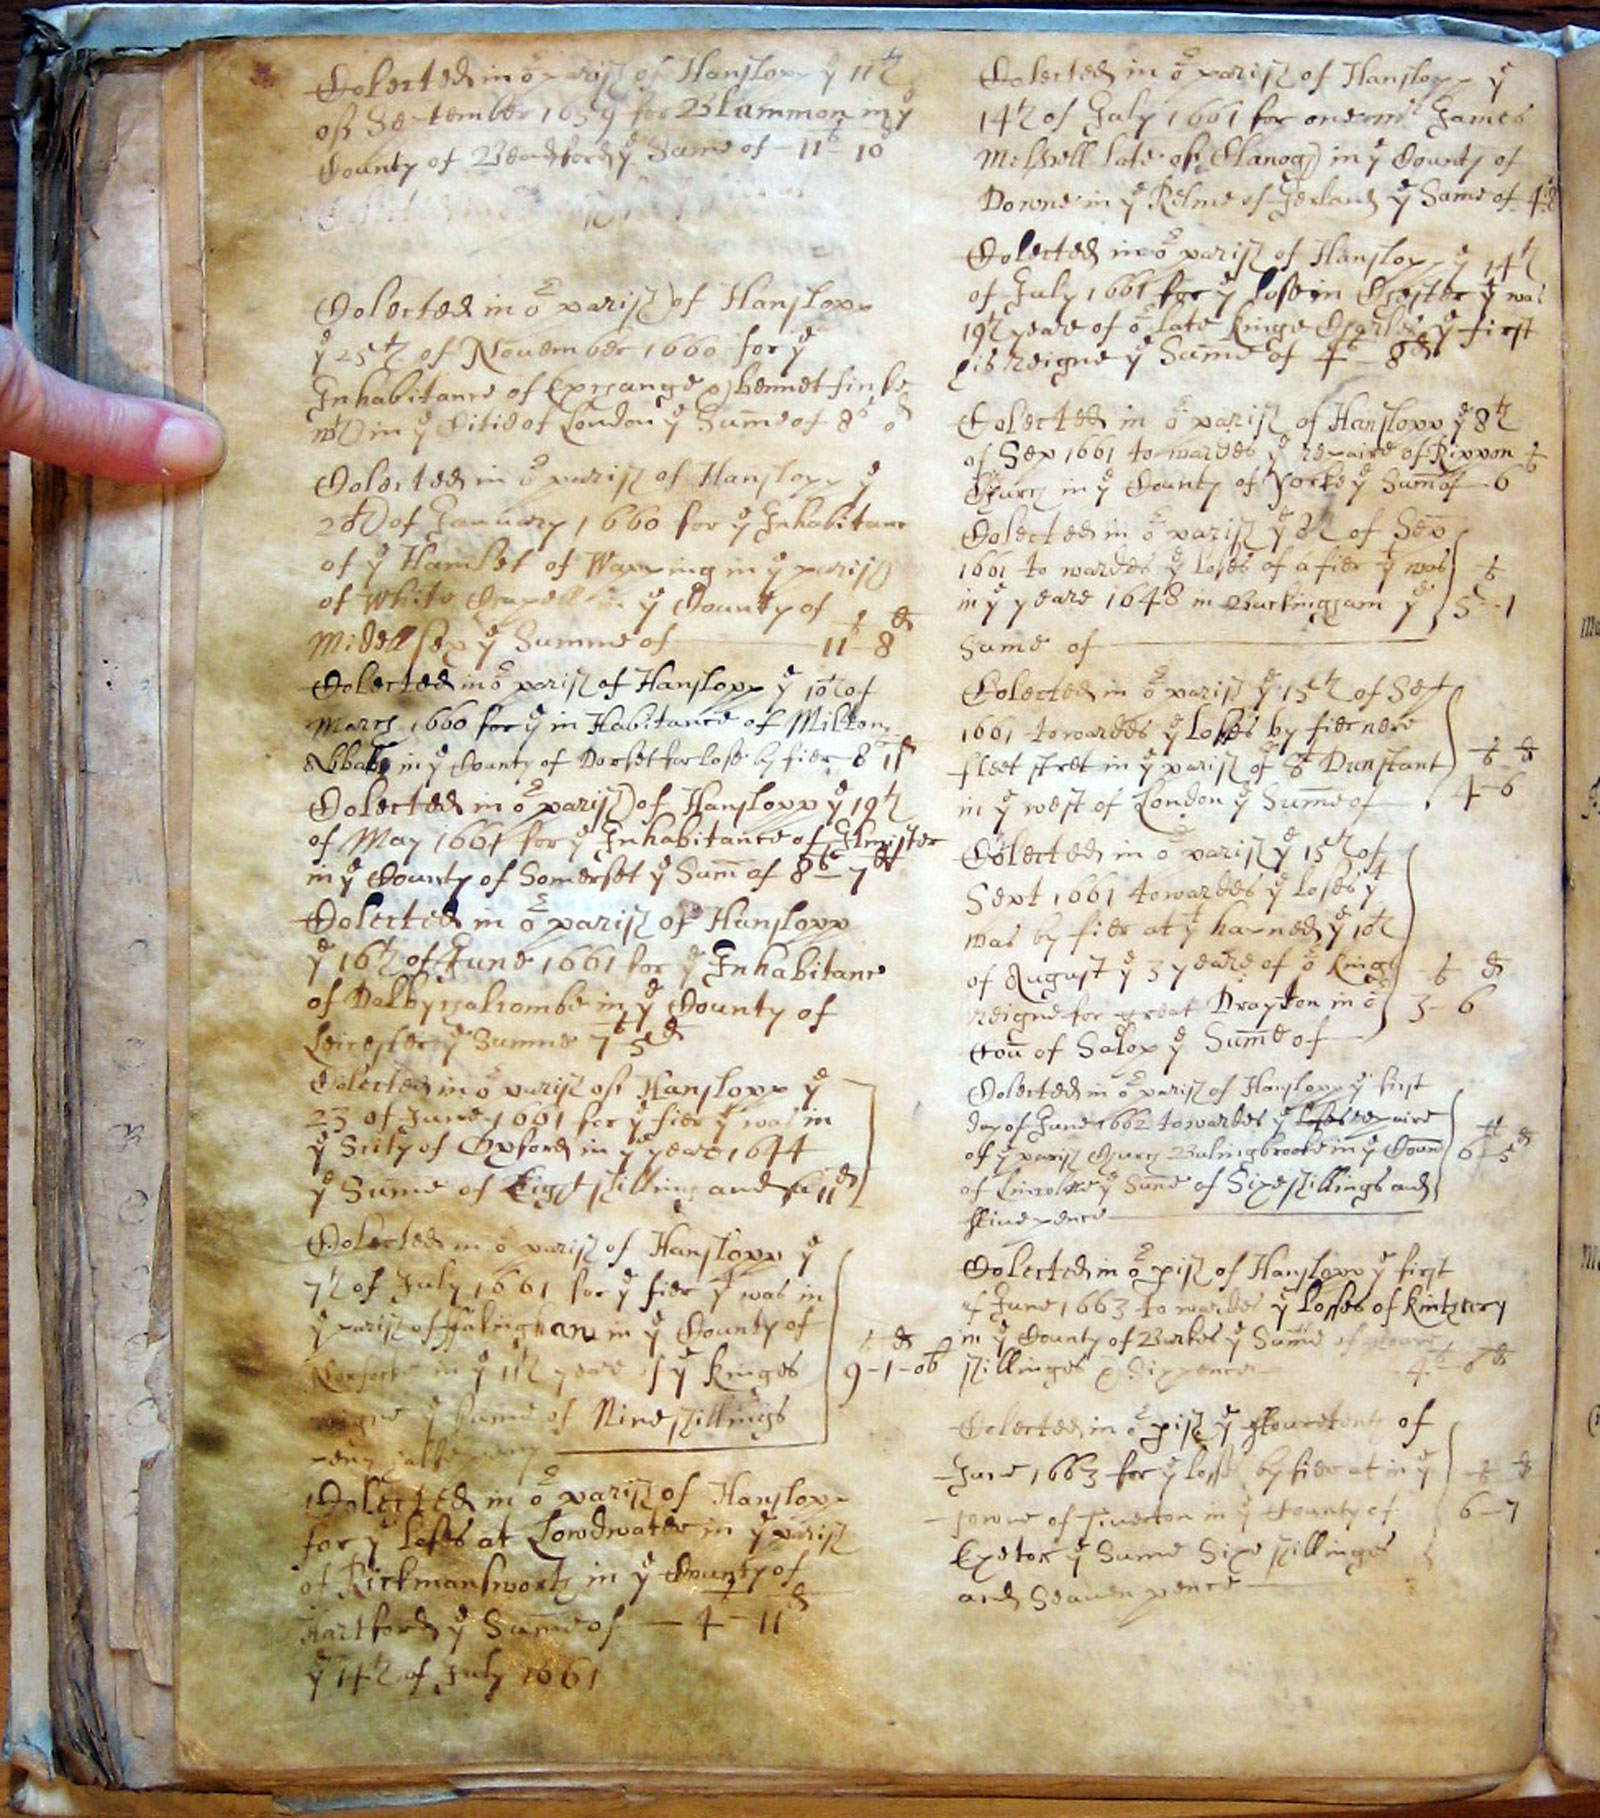 Colected in or parish of Hanslopp ye 11th
of September 1659 for Blummon in ye
County of Beardford ye Sume of - 11s - 10
Colected in or parish of Hanslopp
ye 25th of November 1660 for ye
Inhabitance of Exchange bennet finke
in ye Citie of London ye Summe of 8s 0d
Colected in or parish of Hanslopp ye
of January 1660 for ye Inhabitanc
of ye Hamlet of Wapping in ye parish
of White Chapell in ye County of
Midellsex ye Summe of 11s - 8d
Colected in or parish of Hanslopp ye 10th of
March 1660 for ye in Habitance of Milton
Abbats in ye County of Dorset for lose by fier 8s
Colected in or parish of Hanslopp ye 19th
of May 1661 for ye Inhabitance of Ilmister
in ye County of Somerset ye Summ of 8s - 7d
Colected in or parish of Hanslopp
ye 16th of June 1661 for ye Inhabitanc
of Dalby in ye County of
Leicester ye Summe 7s 5d
Colected in or parish of Hanslopp ye
23 of June 1661 for ye fier yt was in
ye Scity of Oxford in ye yeare 1644
ye Sume of Eight shillings and 11d
Colected in or parish of Hanslopp ye
7th of July 1661 for ye fier yt was in
ye parish of in ye County of
in ye 11th yeare of ye Kinges
ye Sume of Nine shillings
9s - 1d - ob
Colected in or parish of Hanslopp
for ye loses at Lowdwater in ye parish
of Rickmansworth in ye County of
Hartford ye Sume of - 4s - 11d
ye 14th of July 1661
Colected in or parish of Hanslopp ye
14th of July 1661 for one mr James
late of in ye County of
Downe in ye Relme of Ierland ye Sume of 4s
Colected in or parish of Hanslopp ye 14th
of July 1661 for ye lose in yt was
19th yeare of or late Kinge Charles ye first
his reigne ye Summe of 4s - 8d
Colected in or parish of Hanslopp ye 8th
of Sep 1661 to wardes ye repaire of Rippon
Church in ye County of Yorke ye Summ of 6s
Colected in or parish ye 8th of Sep
1661 to wardes ye loses of a fier yt was
in ye yeare 1648 in Buckingham ye
Sume of 5s - 1
Colected in or parish ye 15th of Sept
1661 towardes ye Losses by fier nere
fleet stret in ye parish of St Dunstant
in ye west of London ye Summe of 4s - 6d
Colected in or parish ye 15th of
Sept 1661 towardes ye loses yt
was by fier at yt hapned ye 10th
of August ye 3 yeare of or Kings
reigne for great Drayton in ye
Coun of Salop ye Summe of 3s - 6d
Colected in or parish of Hanslopp ye first
day of June 1662 towardes ye repaire
of ye parish Church Bulingbrooke in ye Coun
of Lincolne ye Sume of Sixe shillings and
ffive pence 6s 5d
Colected in or pish of Hanslopp ye first
of June 1663 to wardes ye Losses of Kintbury
in ye County of Barkes ye Summe of
shillinges & Sixpence 4s - 6d
Colected in or pish ye ffouretenth of
June 1663 for ye losse by fier at in ye
towne of Tiverton in ye County of
Exetor ye Sume Sixe shillinges
and Seauen pence 6s - 7d